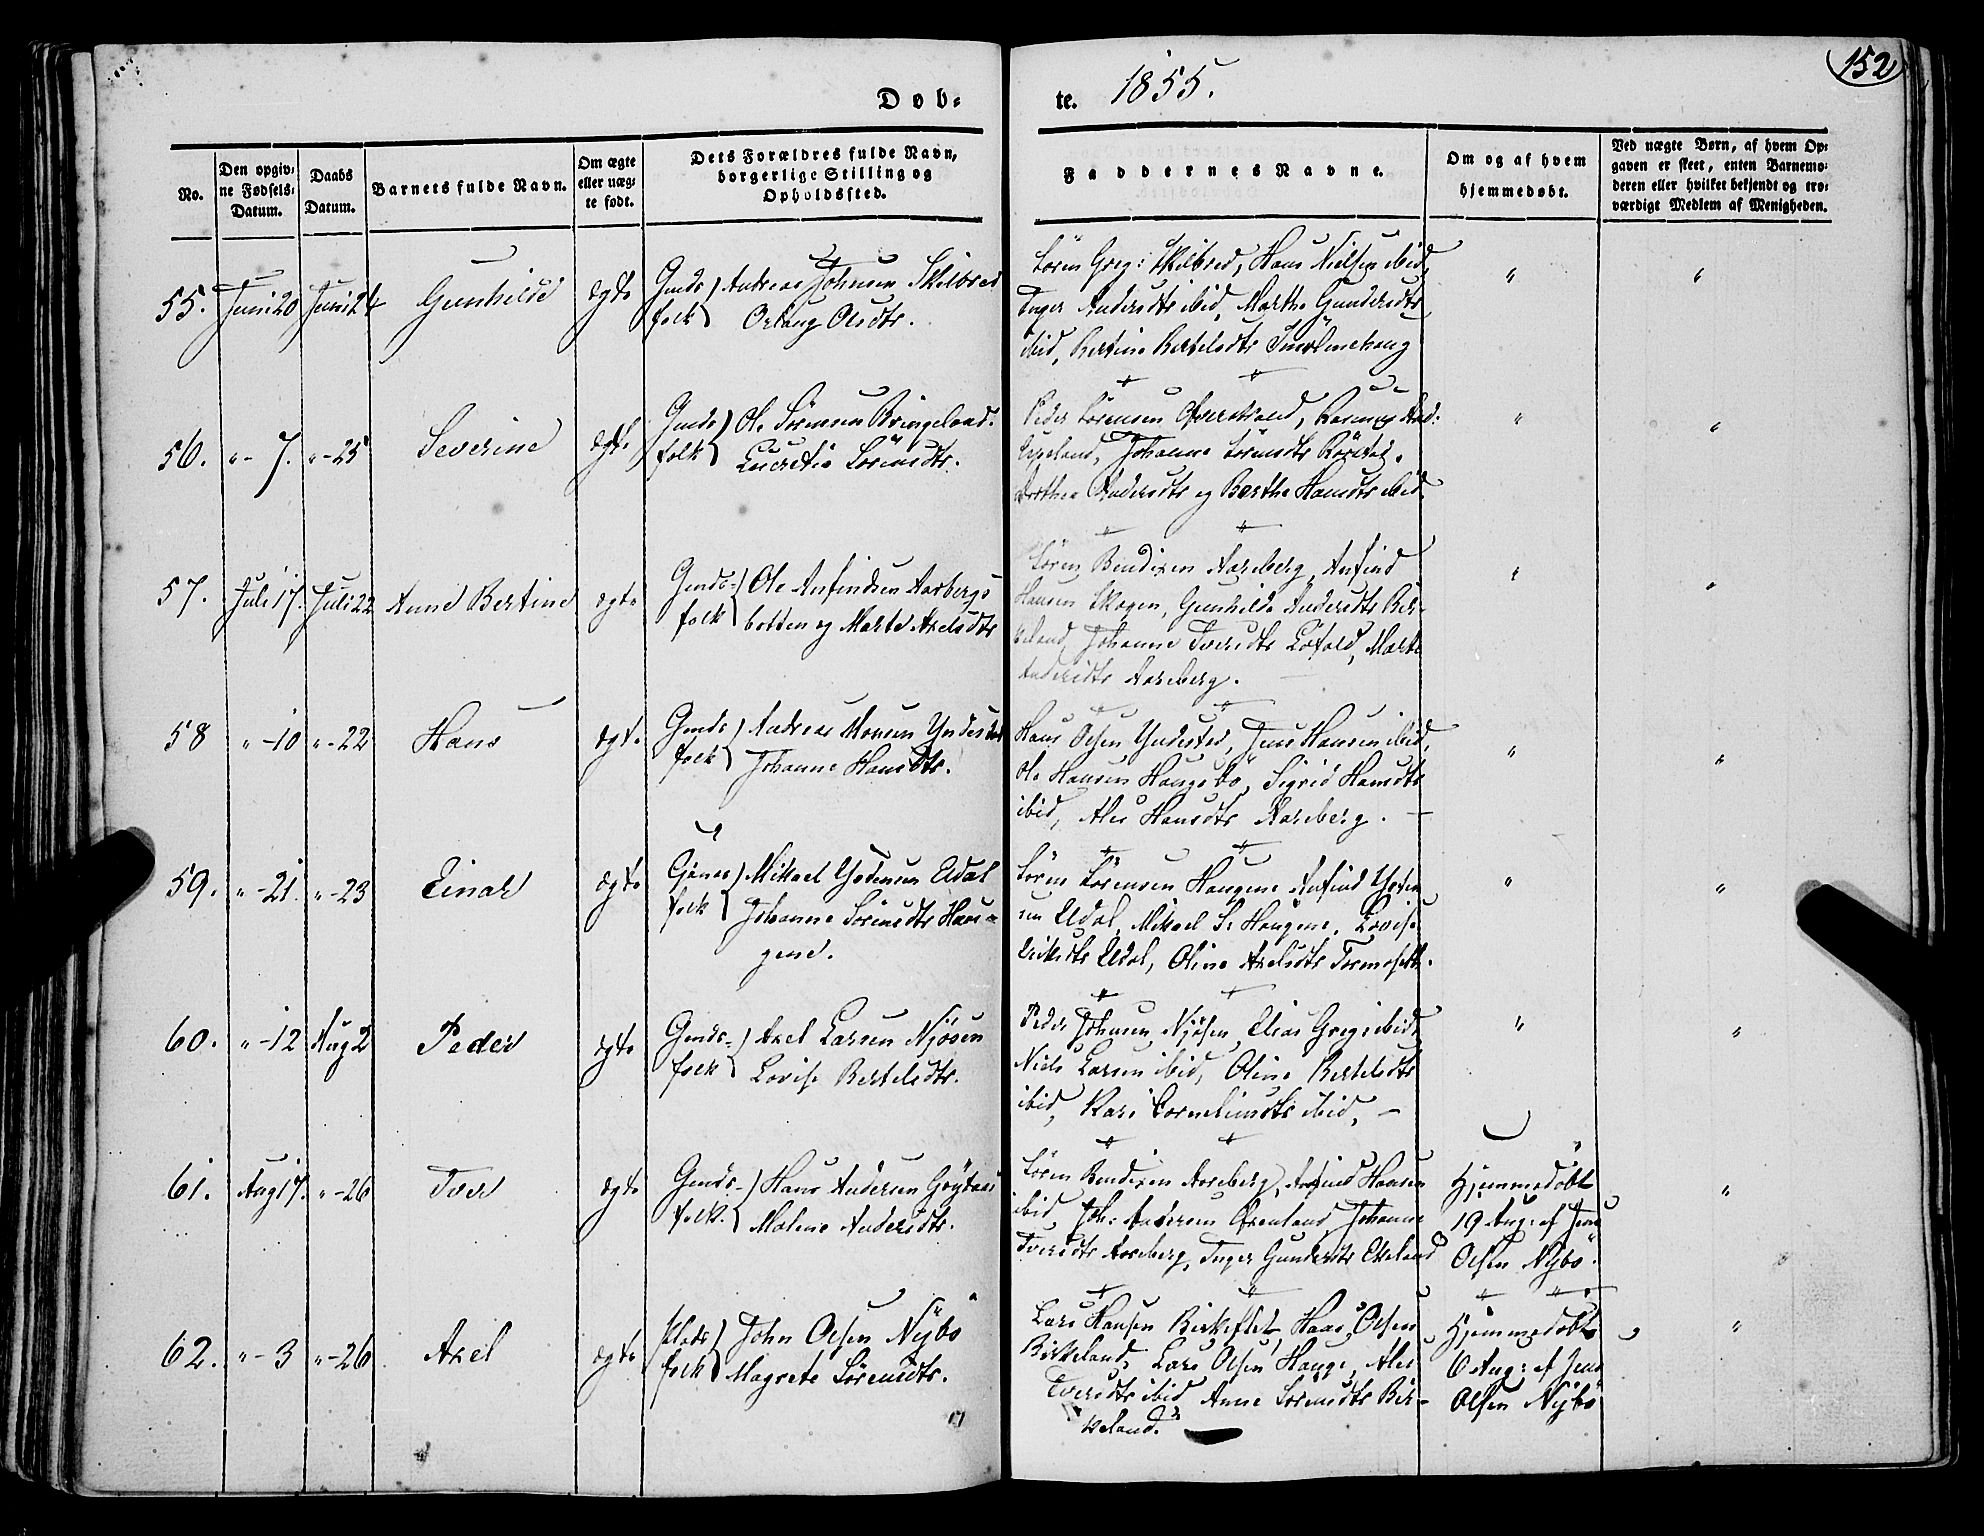 Døb-
te. 1855.
152
No.
Den opgiv-
ne Fødsels-
Datum.
Daabs
Datum.
Barnets fulde Navn.
Om ægte
eller uæg-
te født.
Dets Forældres fulde Navn,
borgerlige Stilling og
Opholdssted.
Faddernes Navne.
Om og af hvem
hjemmedøbt.
Ved uægte Børn, af hvem Op-
gaven er skeet, enten Barnemo-
deren eller hvilket bekjendt og tro-
værdigt Medlem af Menigheden.
55. Juni 20 Juni 24 Gunhilde ægte
Gmds folk Andreas Johnsen Skilbred
Oslaug Olsdtr.
Sören Greg: Skilbred, Hans Nielsen ibid,
Inger Andersdtr ibid, Marthe Gundersdtr
ibid, Bertine Bertelsdtr
" "
56. "- 7. "-25 Severine ægte
Gmds folk Ole Sörensen Bringeland.
Lucretia Sörensdtr.
Peder Sörensen Rasmus And:
Johanne Sörensdtr
Dorthea Andersdtr og Berthe Hansdtr ibid.
" "
57. Juli 17. Juli 22 Anne Bertine ægte
Gmds- folk Ole Anfindsen Aarbergs
botten og Marte Axelsdtr
Sören Bendixen Aarberg, Anfind
Hansen Skogen, Gunhilde Andersdtr Bir-
keland, Johanne Iversdtr Marte
Andersdtr Aarberg.
" "
58 "-10 "-22 Hans ægt.
Gmds folk Andreas Monsen Yndestad
Johanne Hansdtr.
Hans Olsen Yndestad, Jens Hansen ibid,
Ole Hansen Haugsbö, Sigrid Hansdtr
ibid, Ales Hansdtr Aarberg. —
" "
59. "-21. "-23 Einar ægte
folk Mikael Udal
Johanne Sörensdtr Hau-
gene.
Sören Sörensen Haugene Anfind
sen Udal, Mikael Sr Haugene, Lovise
Udal, Oline Axelsdtr
" "
60. "-12 Aug 2 Peder ægte
Gmds- folk Axel Larsen Njösen
Lovise Bertelsdtr.
Peder Johnsen Njösen, Elias Greg: ibid,
Niels Larsen ibid, Oline Bertelsdtr
ibid, Kari Corneliusdtr ibid, —
" "
61. Aug 17. "-26 Iver ægte
Gmds- folk. Hans Andersen
Malene Andersdtr.
Sören Bendixen Aarberg, Anfind Hansen
ibid, Joh: Andersen Johanne
Iversdtr Aarberg, Inger Gundersdtr
Hjemmedöbt
19 Aug: af Jens
Olsen Nybö.
"
62. "-3 "-26 Axel ægte
Plads folk John Olsen Nybö
Magrete Sörensdtr.
Lars Hansen Hans Olsen
Birkeland, Lars Olsen Hauge, Ales
Iversdtr ibid Anne Sörensdtr Bir-
keland.
Hjemmedöbt
6 Aug: af Jens
Olsen Nybö
"